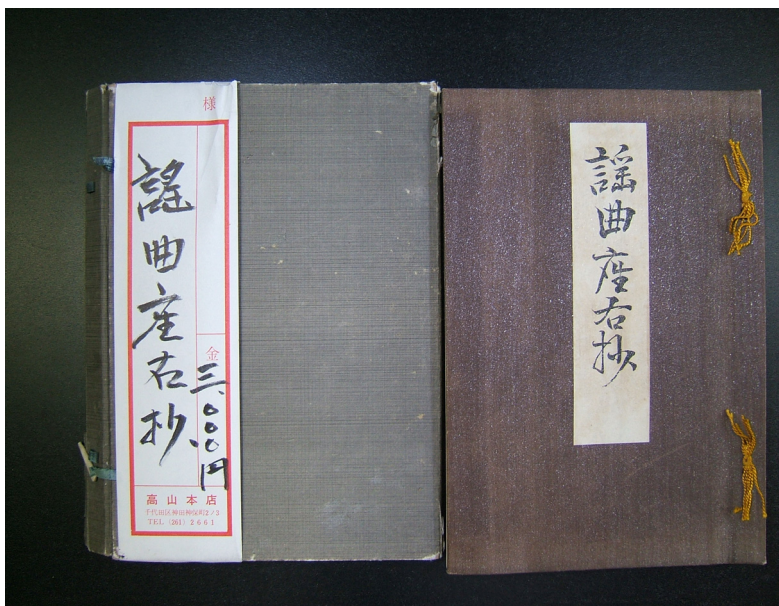 様
謡曲座右抄
金三、〇〇〇円
高山本店
千代田区神田神保町2ノ2
TEL (261) 2661
謡曲座右抄